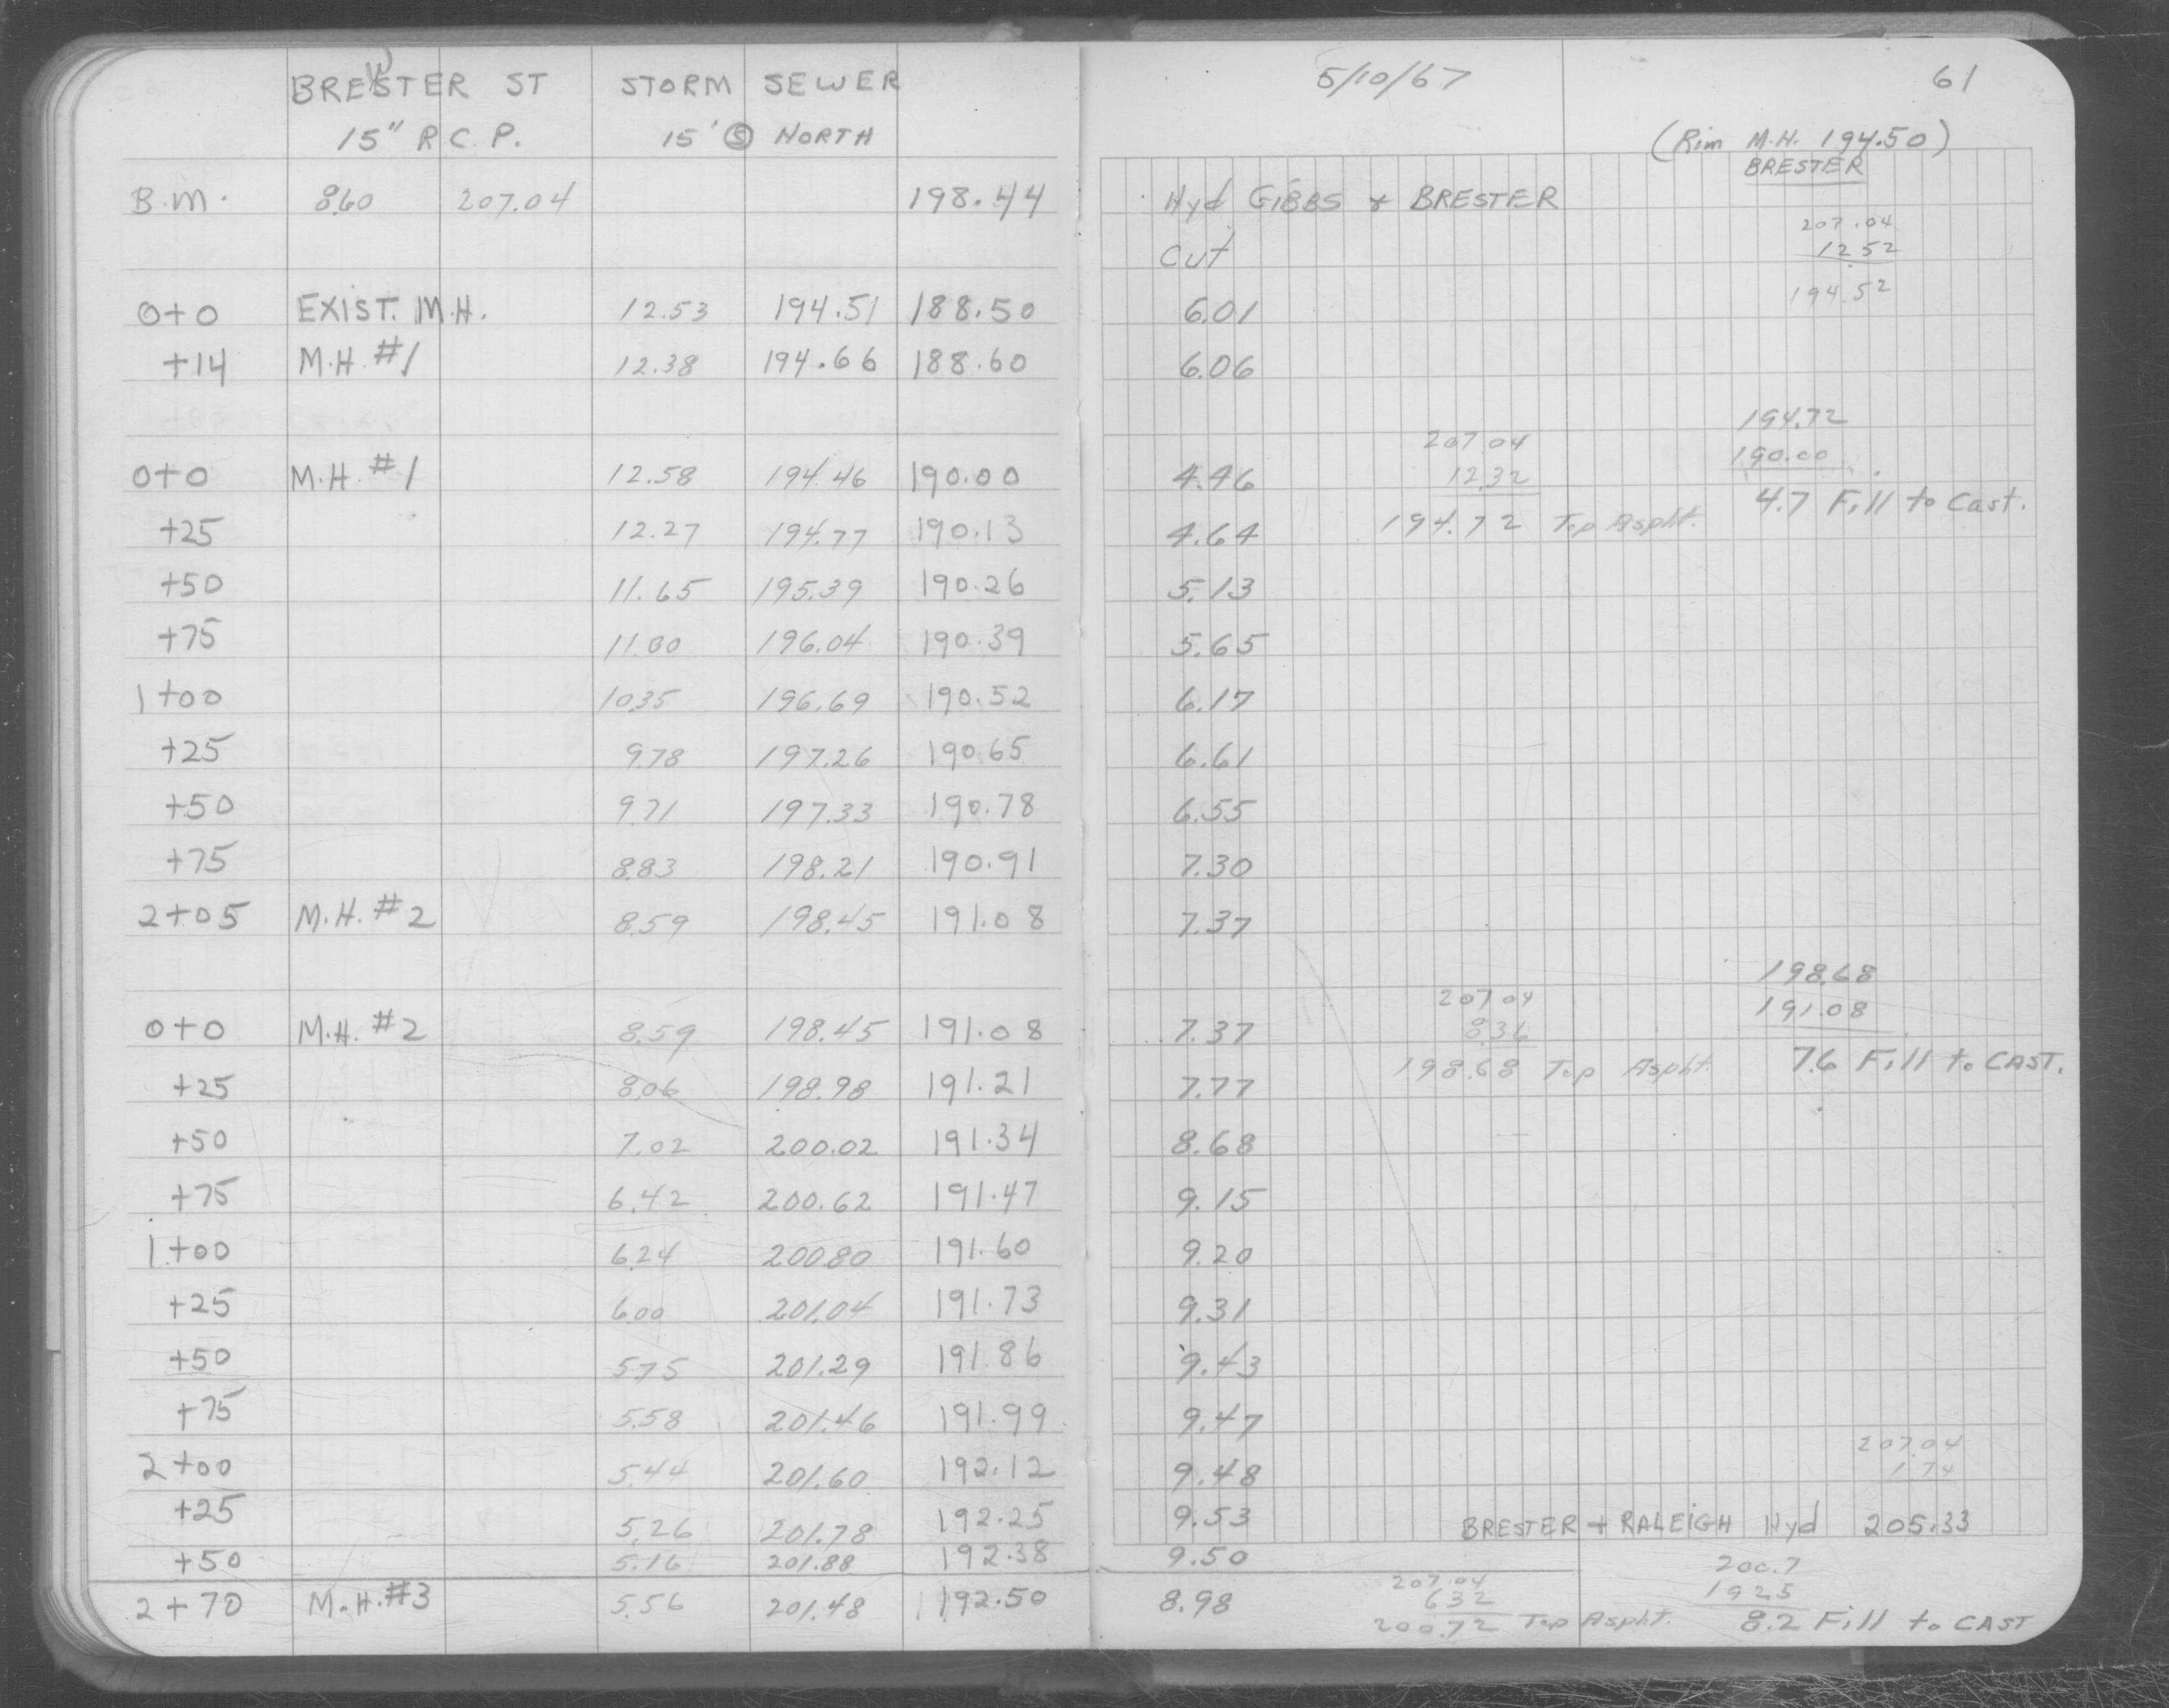 BREWSTER ST STORM SEWER 5/10/67 61
15" R.C.P. 15' Ⓢ NORTH (Rim M.H. 194.50)
BRESTER
B.M. 8.60 207.04 198.44 Hyd GIBBS & BRESTER 207.04
Cut 12.52
0+0 EXIST. M.H. 12.53 194.51 188.50 6.01 194.52
+14 M.H. #1 12.38 194.66 188.60 6.06
207.04 194.72
0+0 M.H. #1 12.58 194.46 190.00 4.46 12.32 190.00
+25 12.27 194.77 190.13 4.64 194.72 Top Aspht. 4.7 Fill to Cast.
+50 11.65 195.39 190.26 5.13
+75 11.00 196.04 190.39 5.65
1+00 10.35 196.69 190.52 6.17
+25 9.78 197.26 190.65 6.61
+50 9.71 197.33 190.78 6.55
+75 8.83 198.21 190.91 7.30
2+05 M.H. #2 8.59 198.45 191.08 7.37
207.04 198.68
0+0 M.H. #2 8.59 198.45 191.08 7.37 8.36 191.08
+25 8.06 198.98 191.21 7.77 198.68 Top Aspht. 7.6 Fill to CAST.
+50 7.02 200.02 191.34 8.68
+75 6.42 200.62 191.47 9.15
1+00 6.24 200.80 191.60 9.20
+25 6.00 201.04 191.73 9.31
+50 5.75 201.29 191.86 9.43
+75 5.58 201.46 191.99 9.47
207.04
2+00 5.44 201.60 192.12 9.48 1.74
+25 5.26 201.78 192.25 9.53 BRESTER + RALEIGH Hyd 205.33
+50 5.16 201.88 192.38 9.50 207.04 200.7
2+70 M.H. #3 5.56 201.48 192.50 8.98 6.32 192.5
200.72 Top Aspht. 8.2 Fill to CAST